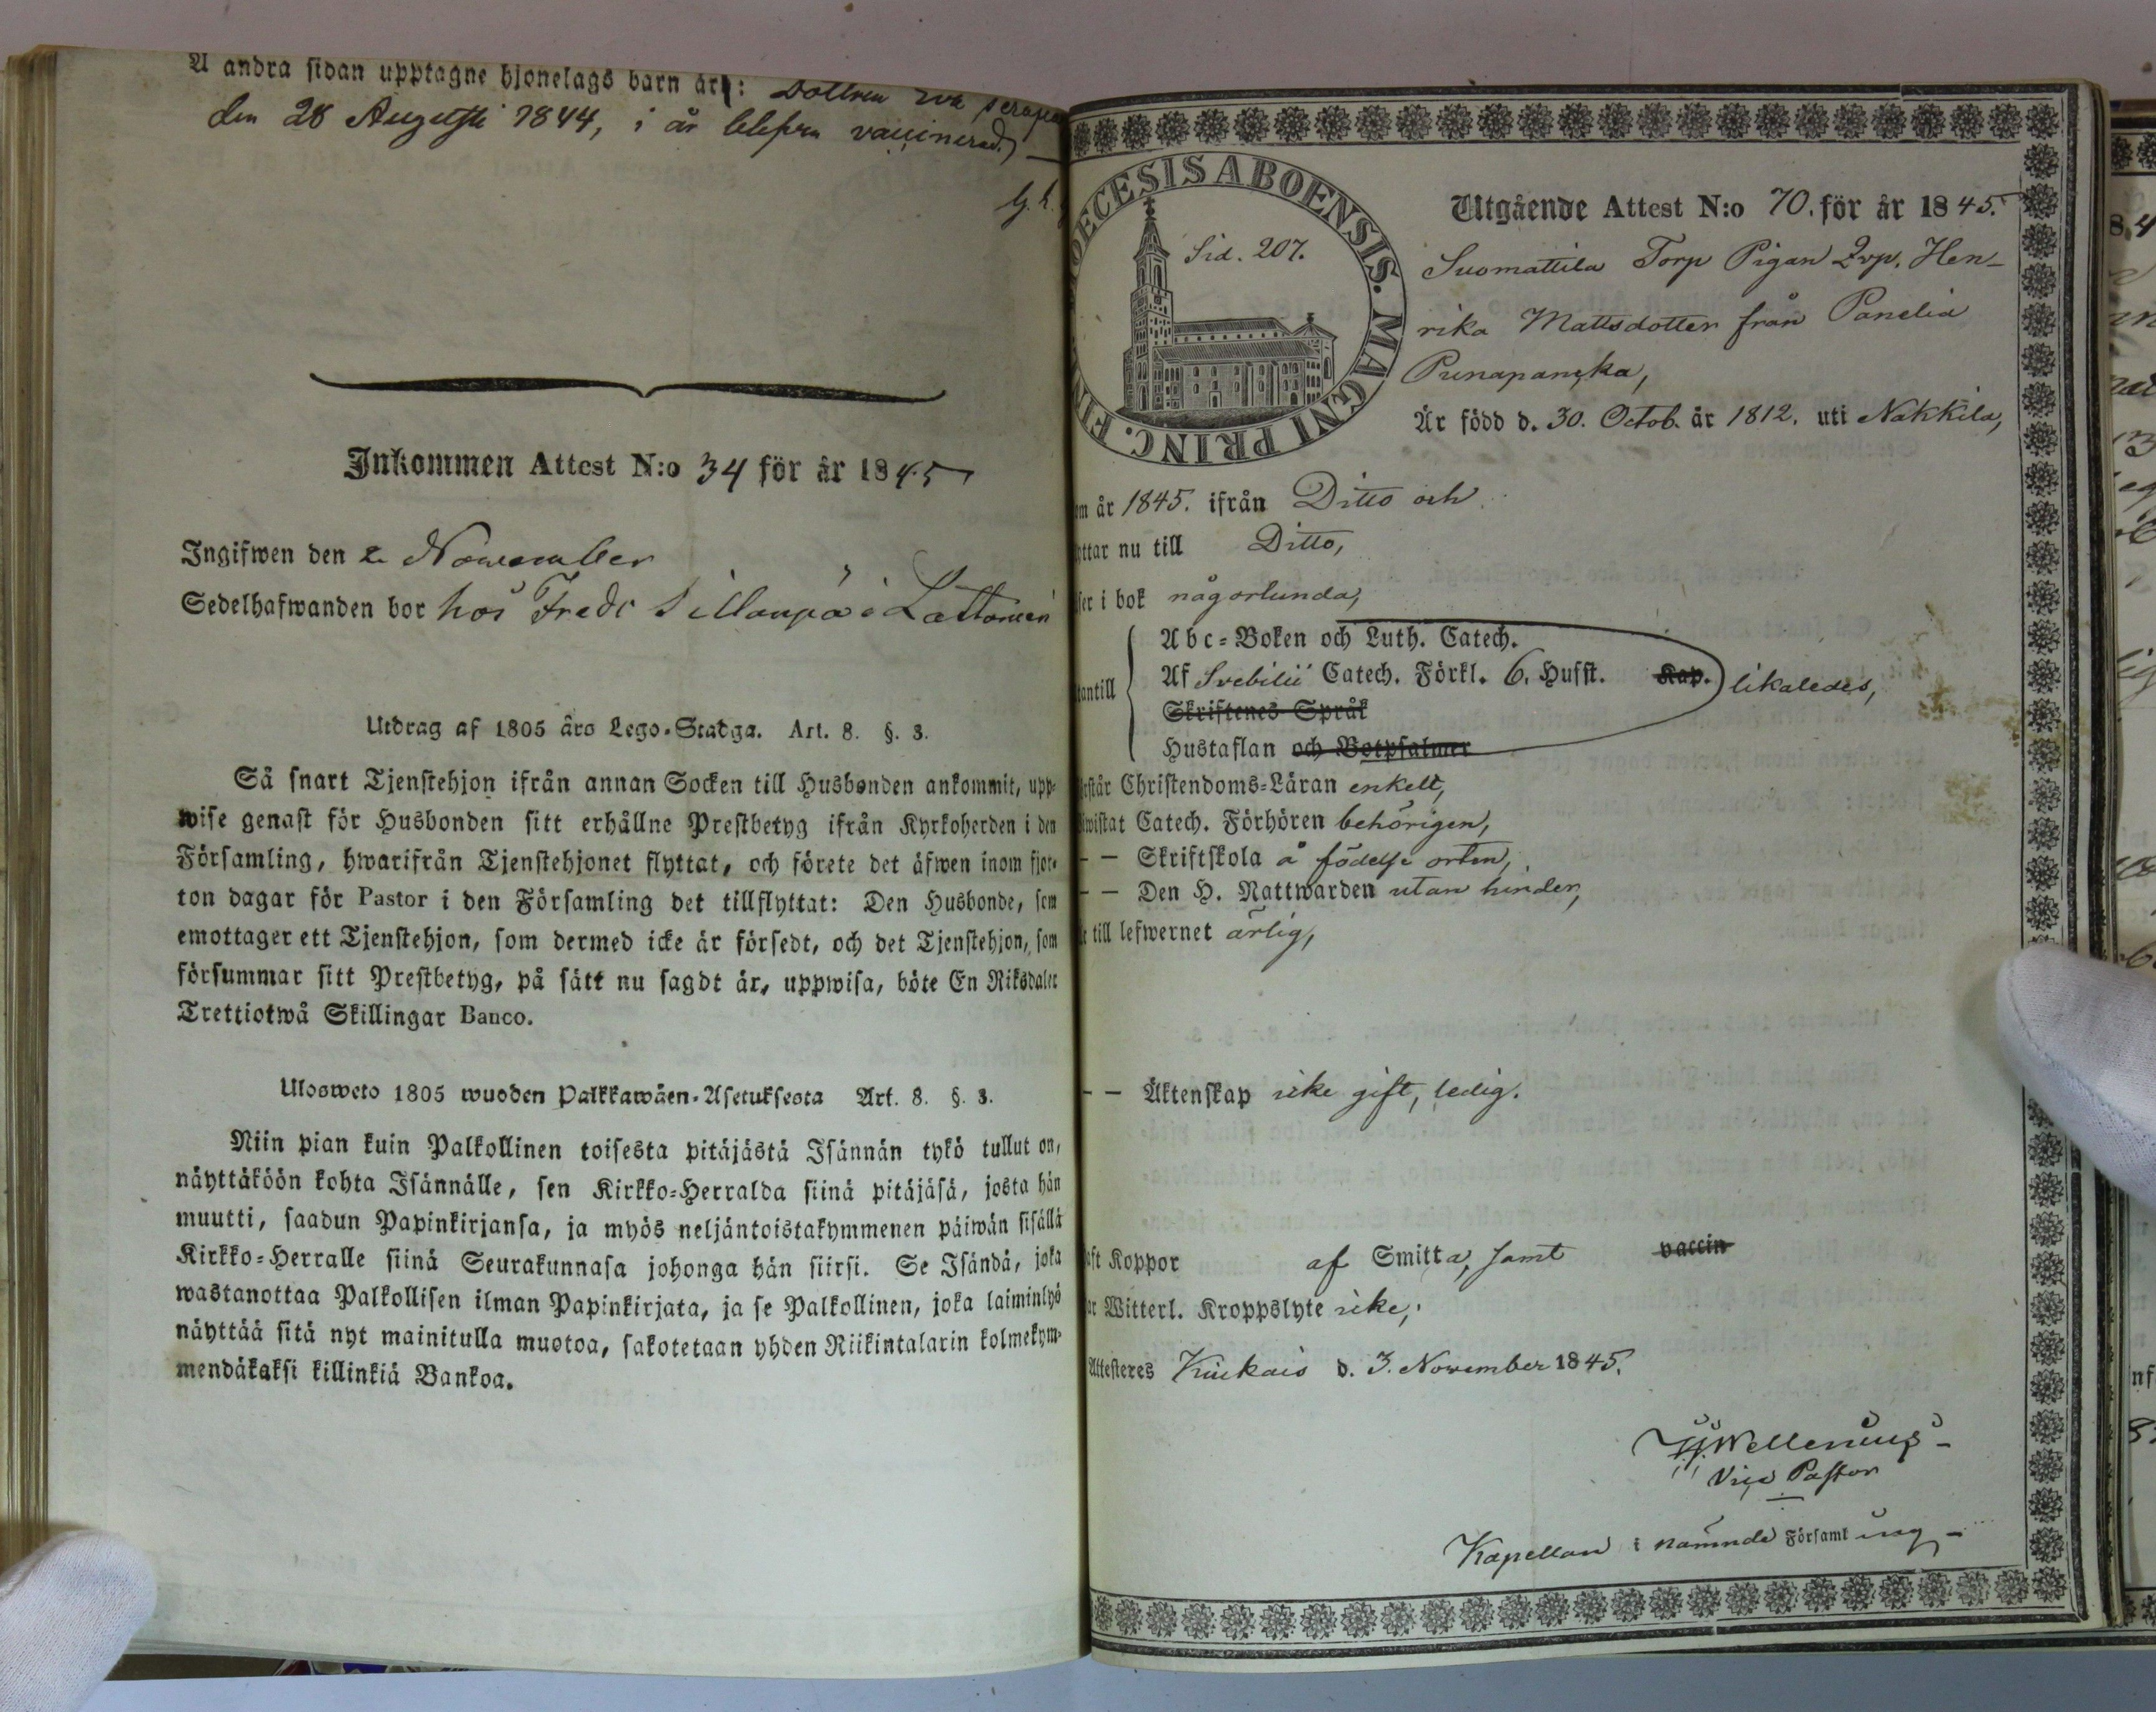 A andra sidan upptagne hjonelags barn är: Dottren
den 28 Augusti 1844, i år blefven vaccinerad. —
Inkommen Attest N:o 34 för år 1845
Ingifwen den 2 November
Sedelhafwanden bor hos Fredr Sillanpä i Lattomeri
Utdrag af 1805 års Lego-Stadga. Art. 8. §. 3.
Så snart Tjenstehjon ifrån annan Socken till Husbonden ankommit, upp-
wise genast för Husbonden sitt erhållne Prestbetyg ifrån Kyrkoherden i den
Församling, hwarifrån Tjenstehjonet flyttat, och förete det äfwen inom fjor-
ton dagar för Pastor i den Församling det tillflyttat: Den Husbonde, som
emottager ett Tjenstehjon, som dermed icke är försedt, och det Tjenstehjon, som
försummar sitt Prestbetyg, på sätt nu sagdt är, uppwisa, böte En Riksdaler
Trettiotwå Skillingar Banco.
Ulosweto 1805 wuoden Palkkawäen-Asetuksesta Art. 8. §. 3.
Niin pian kuin Palkollinen toisesta pitäjästä Isännän tykö tullut on,
näyttäköön kohta Isännälle, sen Kirkko-Herralda siinä pitäjäsä, josta hän
muutti, saadun Papinkirjansa, ja myös neljäntoistakymmenen päiwän sisällä
Kirkko-Herralle siinä Seurakunnasa johonga hän siirsi. Se Isändä, joka
wastanottaa Palkollisen ilman Papinkirjata, ja se Palkollinen, joka laiminlyö
näyttää sitä nyt mainitulla muotoa, sakotetaan yhden Riikintalarin kolmekym-
mendäkaksi killinkiä Bankoa.
DIOECESIS ABOENSIS. MAGNI PRINC. FIN
Sid. 207.
Utgående Attest N:o 70. för år 1845.
Suomattila Torp Pigan Qvp. Hen-
rika Mattsdotter från Panelia
Punapanska,
Är född d. 30. Octob. år 1812. uti Nakkila,
om år 1845. ifrån Ditto och
yttar nu till Ditto,
ser i bok någorlunda,
Abc-Boken och Luth. Catech.
Af Svebilii Catech. Förkl. 6. Hufst. Kap. likaledes,
tantill
Skriftenes Språk
Hustaflan och Botpsalmer
rstår Christendoms-Läran enkelt,
iwistat Catech. Förhören behörigen,
— — Skriftskola å födelse orten,
— — Den H. Nattwarden utan hinder,
till lefwernet ärlig,
— — Äktenskap icke gift, ledig.
aft Koppor af Smitta, samt vaccin
ar Witterl. Kroppslyte icke,
Attesteres Kiukais d. 3. November 1845.
Wellenius
Vice Pastor
Kapellan i nämnde Församling